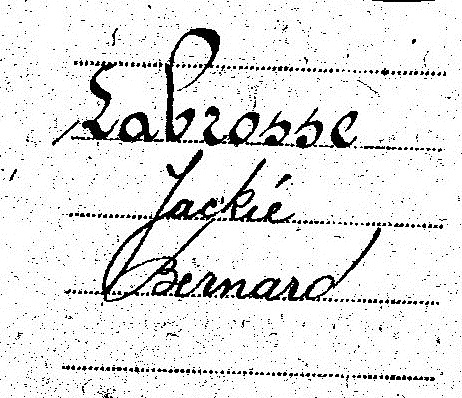 Labrosse
Jackié
Bernard